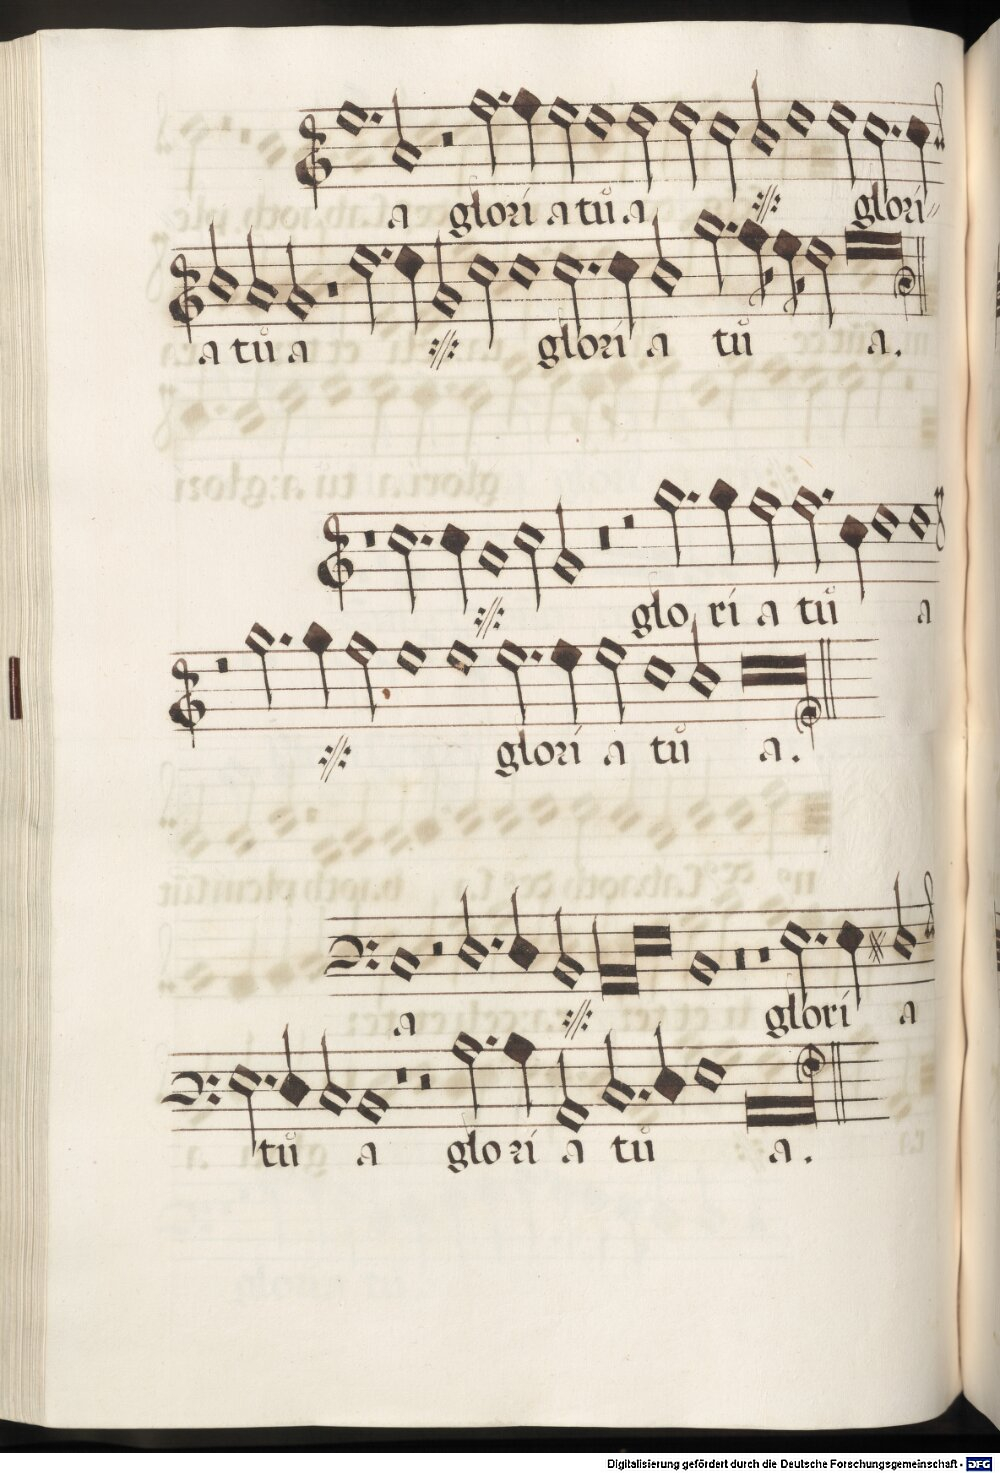 a glori a tů a glori
a tů a glori a tů a.
glo ri a tů a
glori a tů a.
a glori a
tů a glori a tů a.
Digitalisierung gefördert durch die Deutsche Forschungsgemeinschaft - DFG